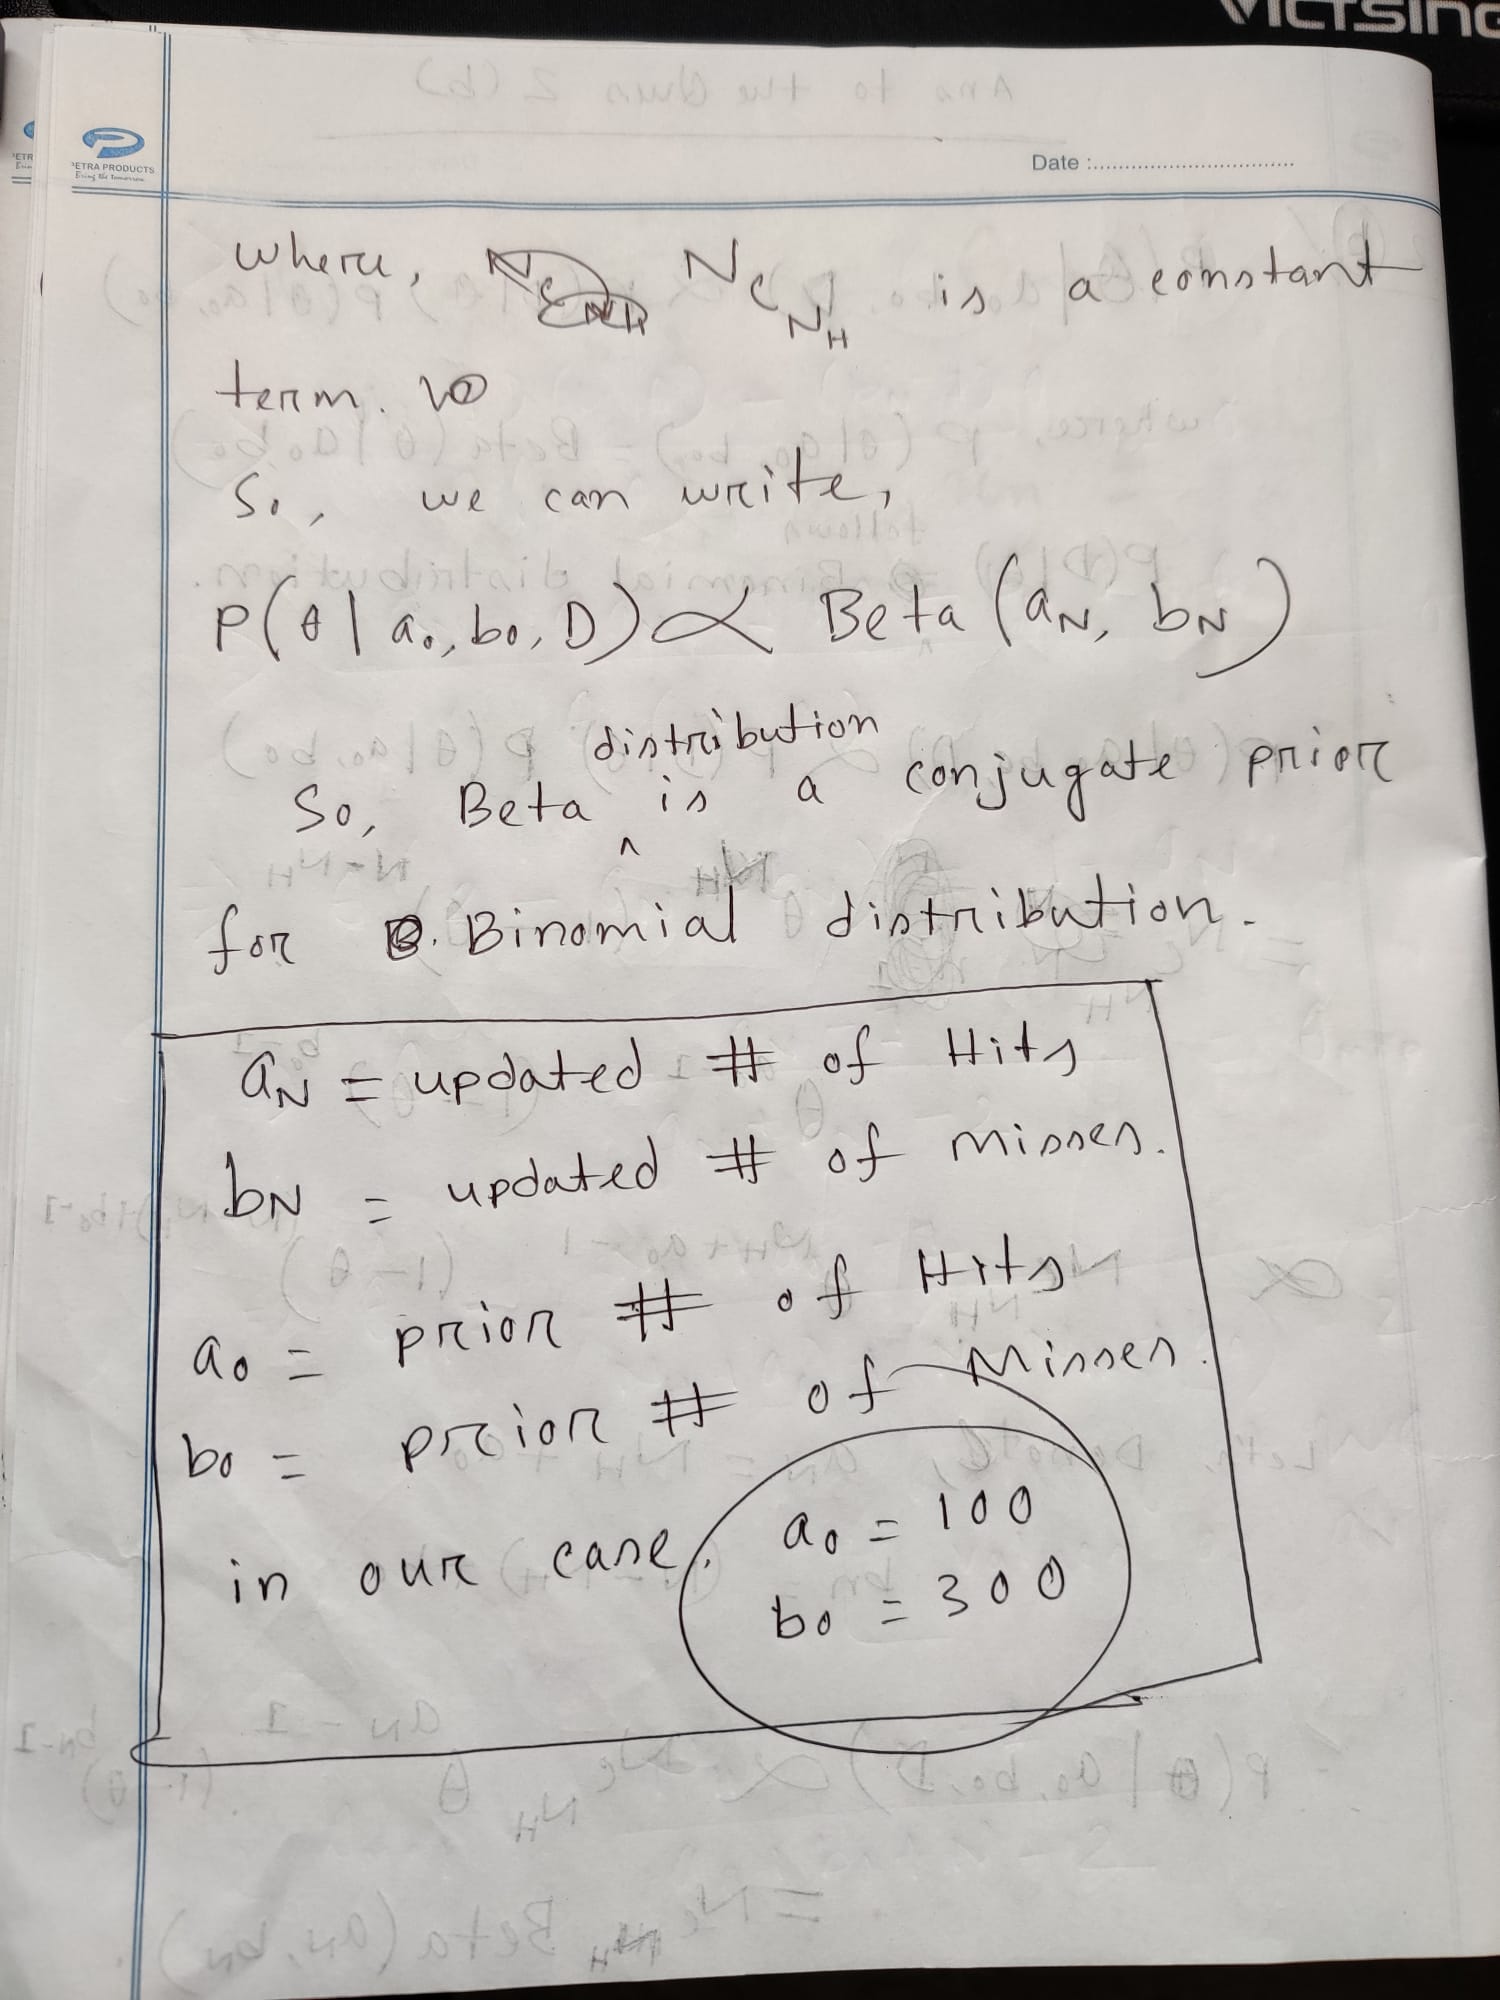 VICTSING
PETRA PRODUCTS
Bring the tomorrow
Date :
where, N C N H is a constant
term.
So, we can write,
P(θ | a₀, b₀, D) ∝ Beta (a_N, b_N)
distribution
So, Beta ^ is a conjugate prior
for Binomial distribution.
a_N = updated # of Hits
b_N = updated # of misses.
a₀ = prior # of Hits
b₀ = prior # of Misses.
in our case, a₀ = 100
b₀ = 300